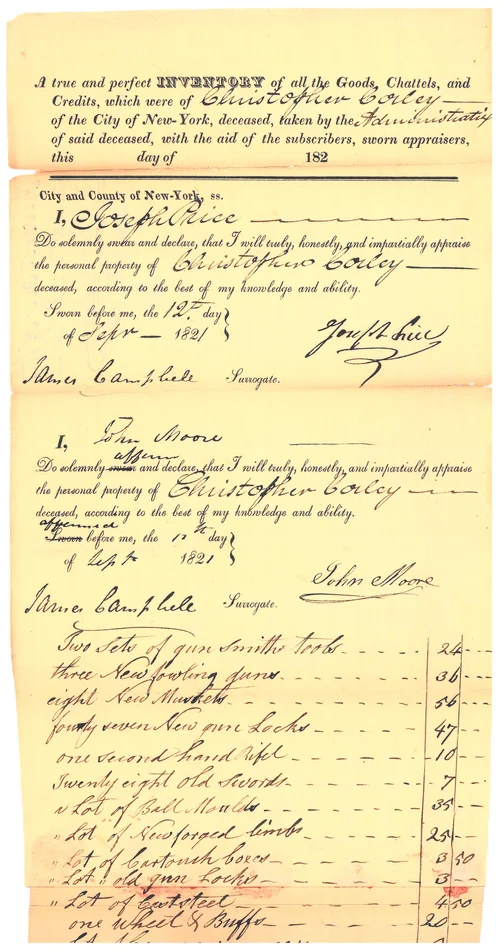 A true and perfect INVENTORY of all the Goods, Chattels, and
Credits, which were of Christopher Corley
of the City of New-York, deceased, taken by the Administratrix
of said deceased, with the aid of the subscribers, sworn appraisers,
this day of 182
City and County of New-York, ss.
I, Joseph Price
Do solemnly swear and declare, that I will truly, honestly, and impartially appraise
the personal property of Christopher Corley
deceased, according to the best of my knowledge and ability.
Sworn before me, the 12th day
of Sepr 1821
Joseph Price
James Campbell Surrogate.
I, John Moore
affirm
Do solemnly swear and declare, that I will truly, honestly, and impartially appraise
the personal property of Christopher Corley
deceased, according to the best of my knowledge and ability.
affirmed
Sworn before me, the 12th day
of Sept 1821
John Moore
James Campbell Surrogate.
Two sets of gun smiths tools 24
three New fowling guns 36
eight New Muskets 56
fourty seven New gun Locks 47
one second hand Rifel 10
Twenty eight old swords 7
a Lot of Ball Moulds 35
" Lot of New forged limbs 25
" Lot of Cartouch boxes 3 50
" Lot " old gun Locks 3
" Lot of Cast steel 4 50
one wheel & Buffs 20